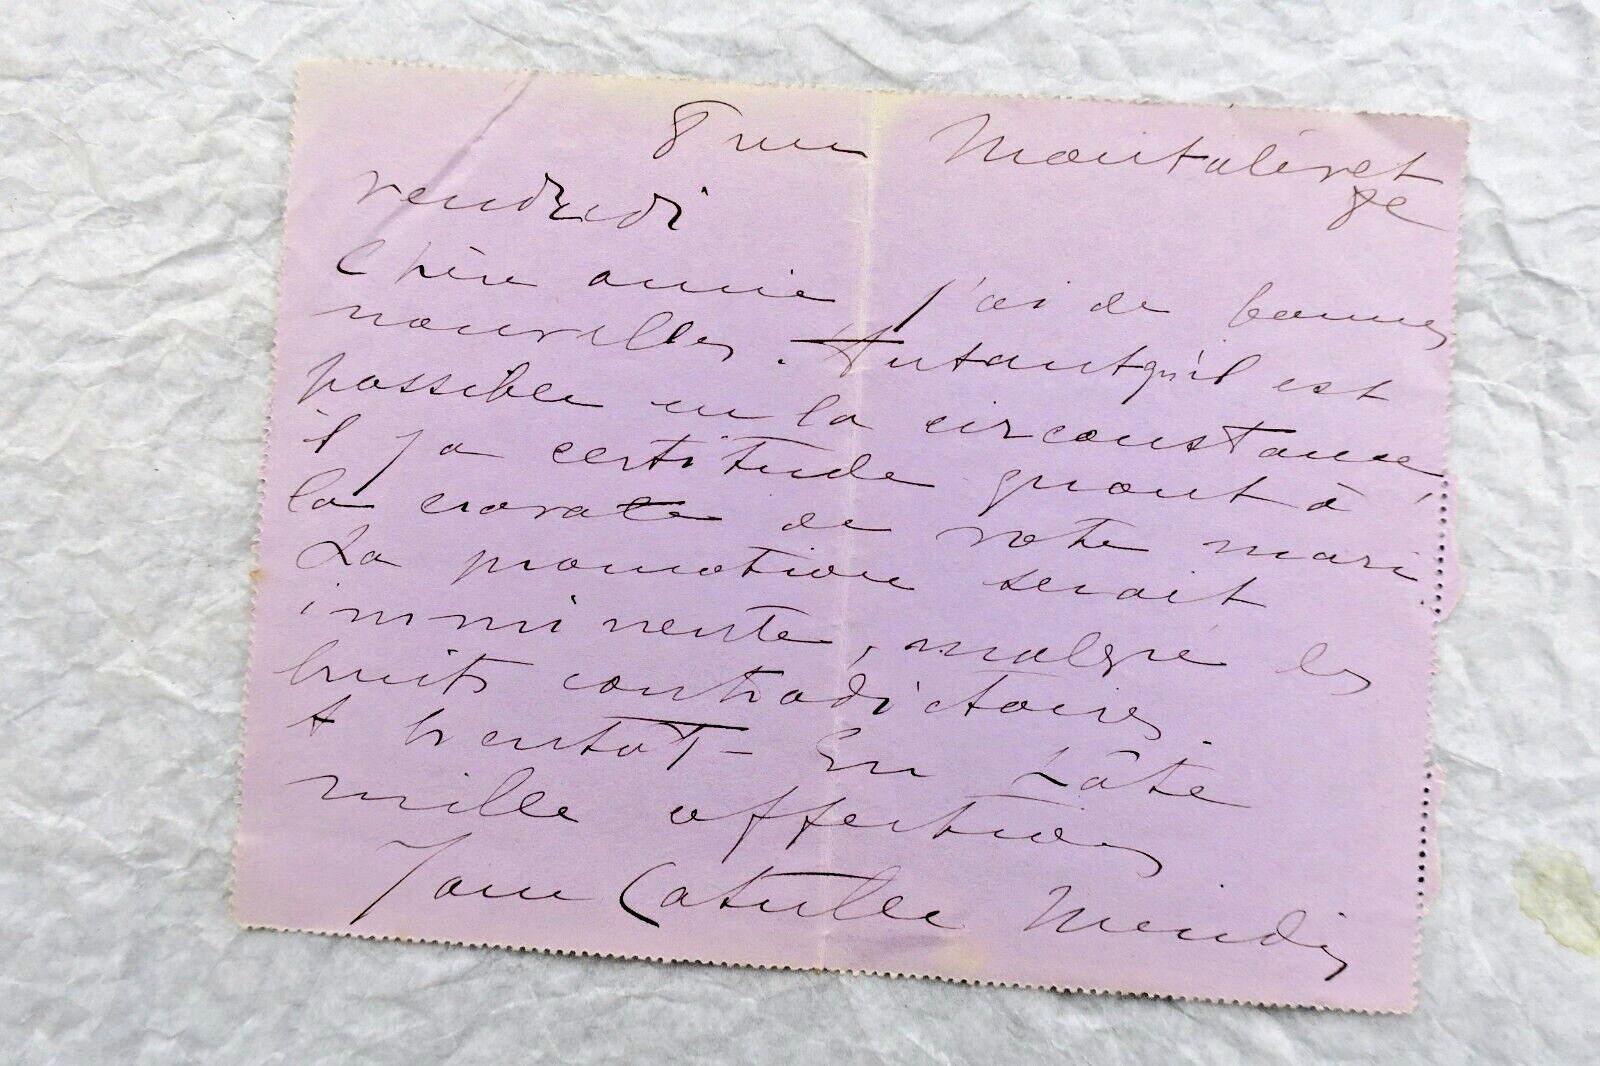 8 rue Montalivet
8e
vendredi
Chère amie j'ai de bonnes
nouvelles. Autant qu'il est
possible en la circonstance
il y a certitude quant à
la cravate de votre mari
La promotion serait
imminente, malgré les
bruits contradictoires
A bientôt - En hâte
mille affections
Jane Catulle Mendès